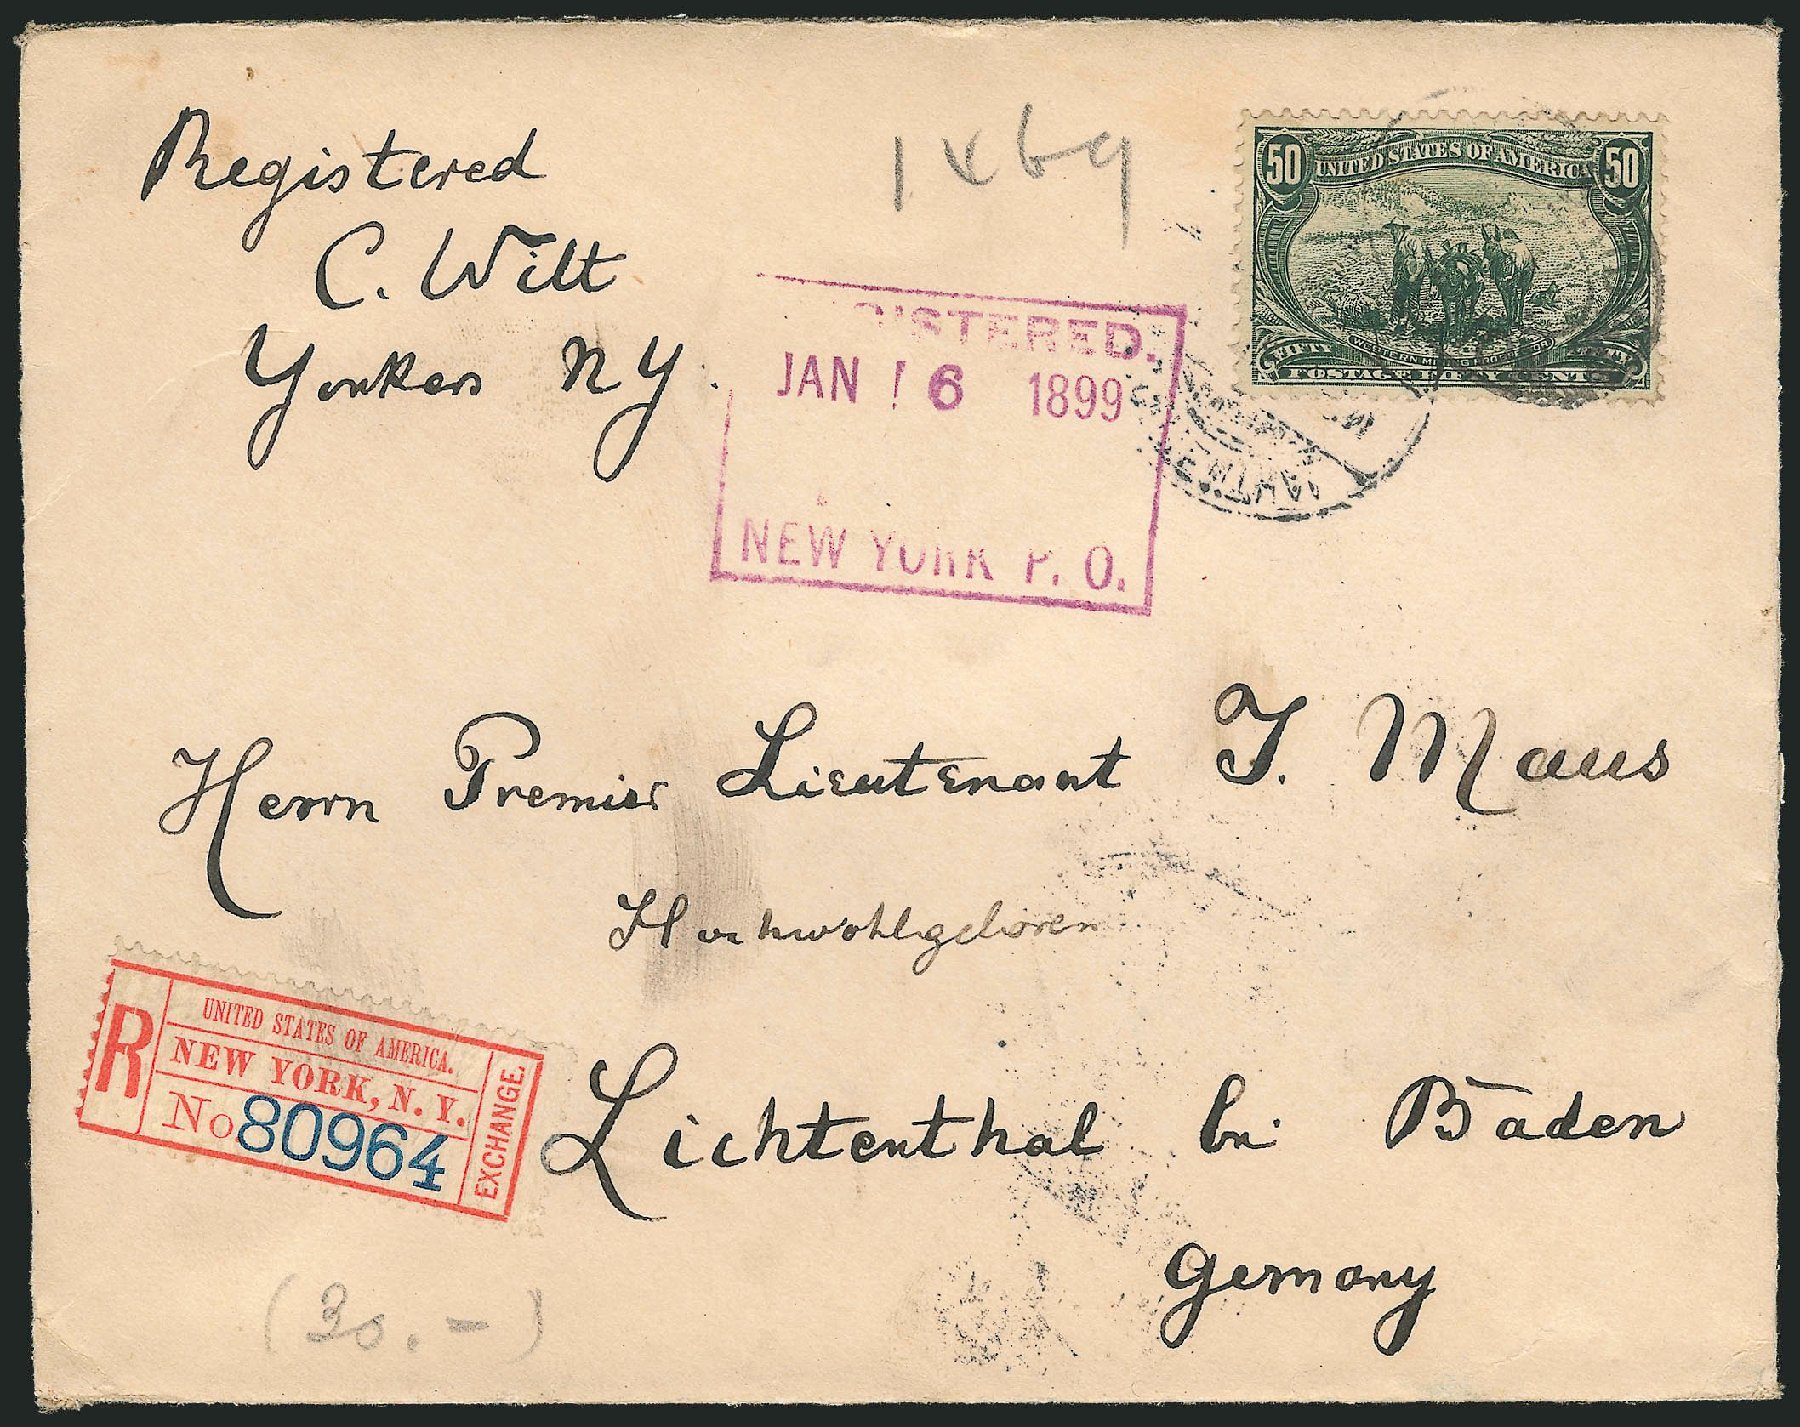 Registered
C. Wilt
Yonkers NY.
1469
50 UNITED STATES OF AMERICA 50
FIFTY WESTERN MINING PROSPECTOR FIFTY
POSTAGE FIFTY CENTS
GISTERED.
JAN 16 1899
NEW YORK P. O.
Herrn Premier Lieutenant T. Maus
Hochwohlgeboren
Lichtenthal bei Baden
Germany
R
UNITED STATES OF AMERICA.
NEW YORK, N. Y.
No 80964
EXCHANGE.
(30.-)